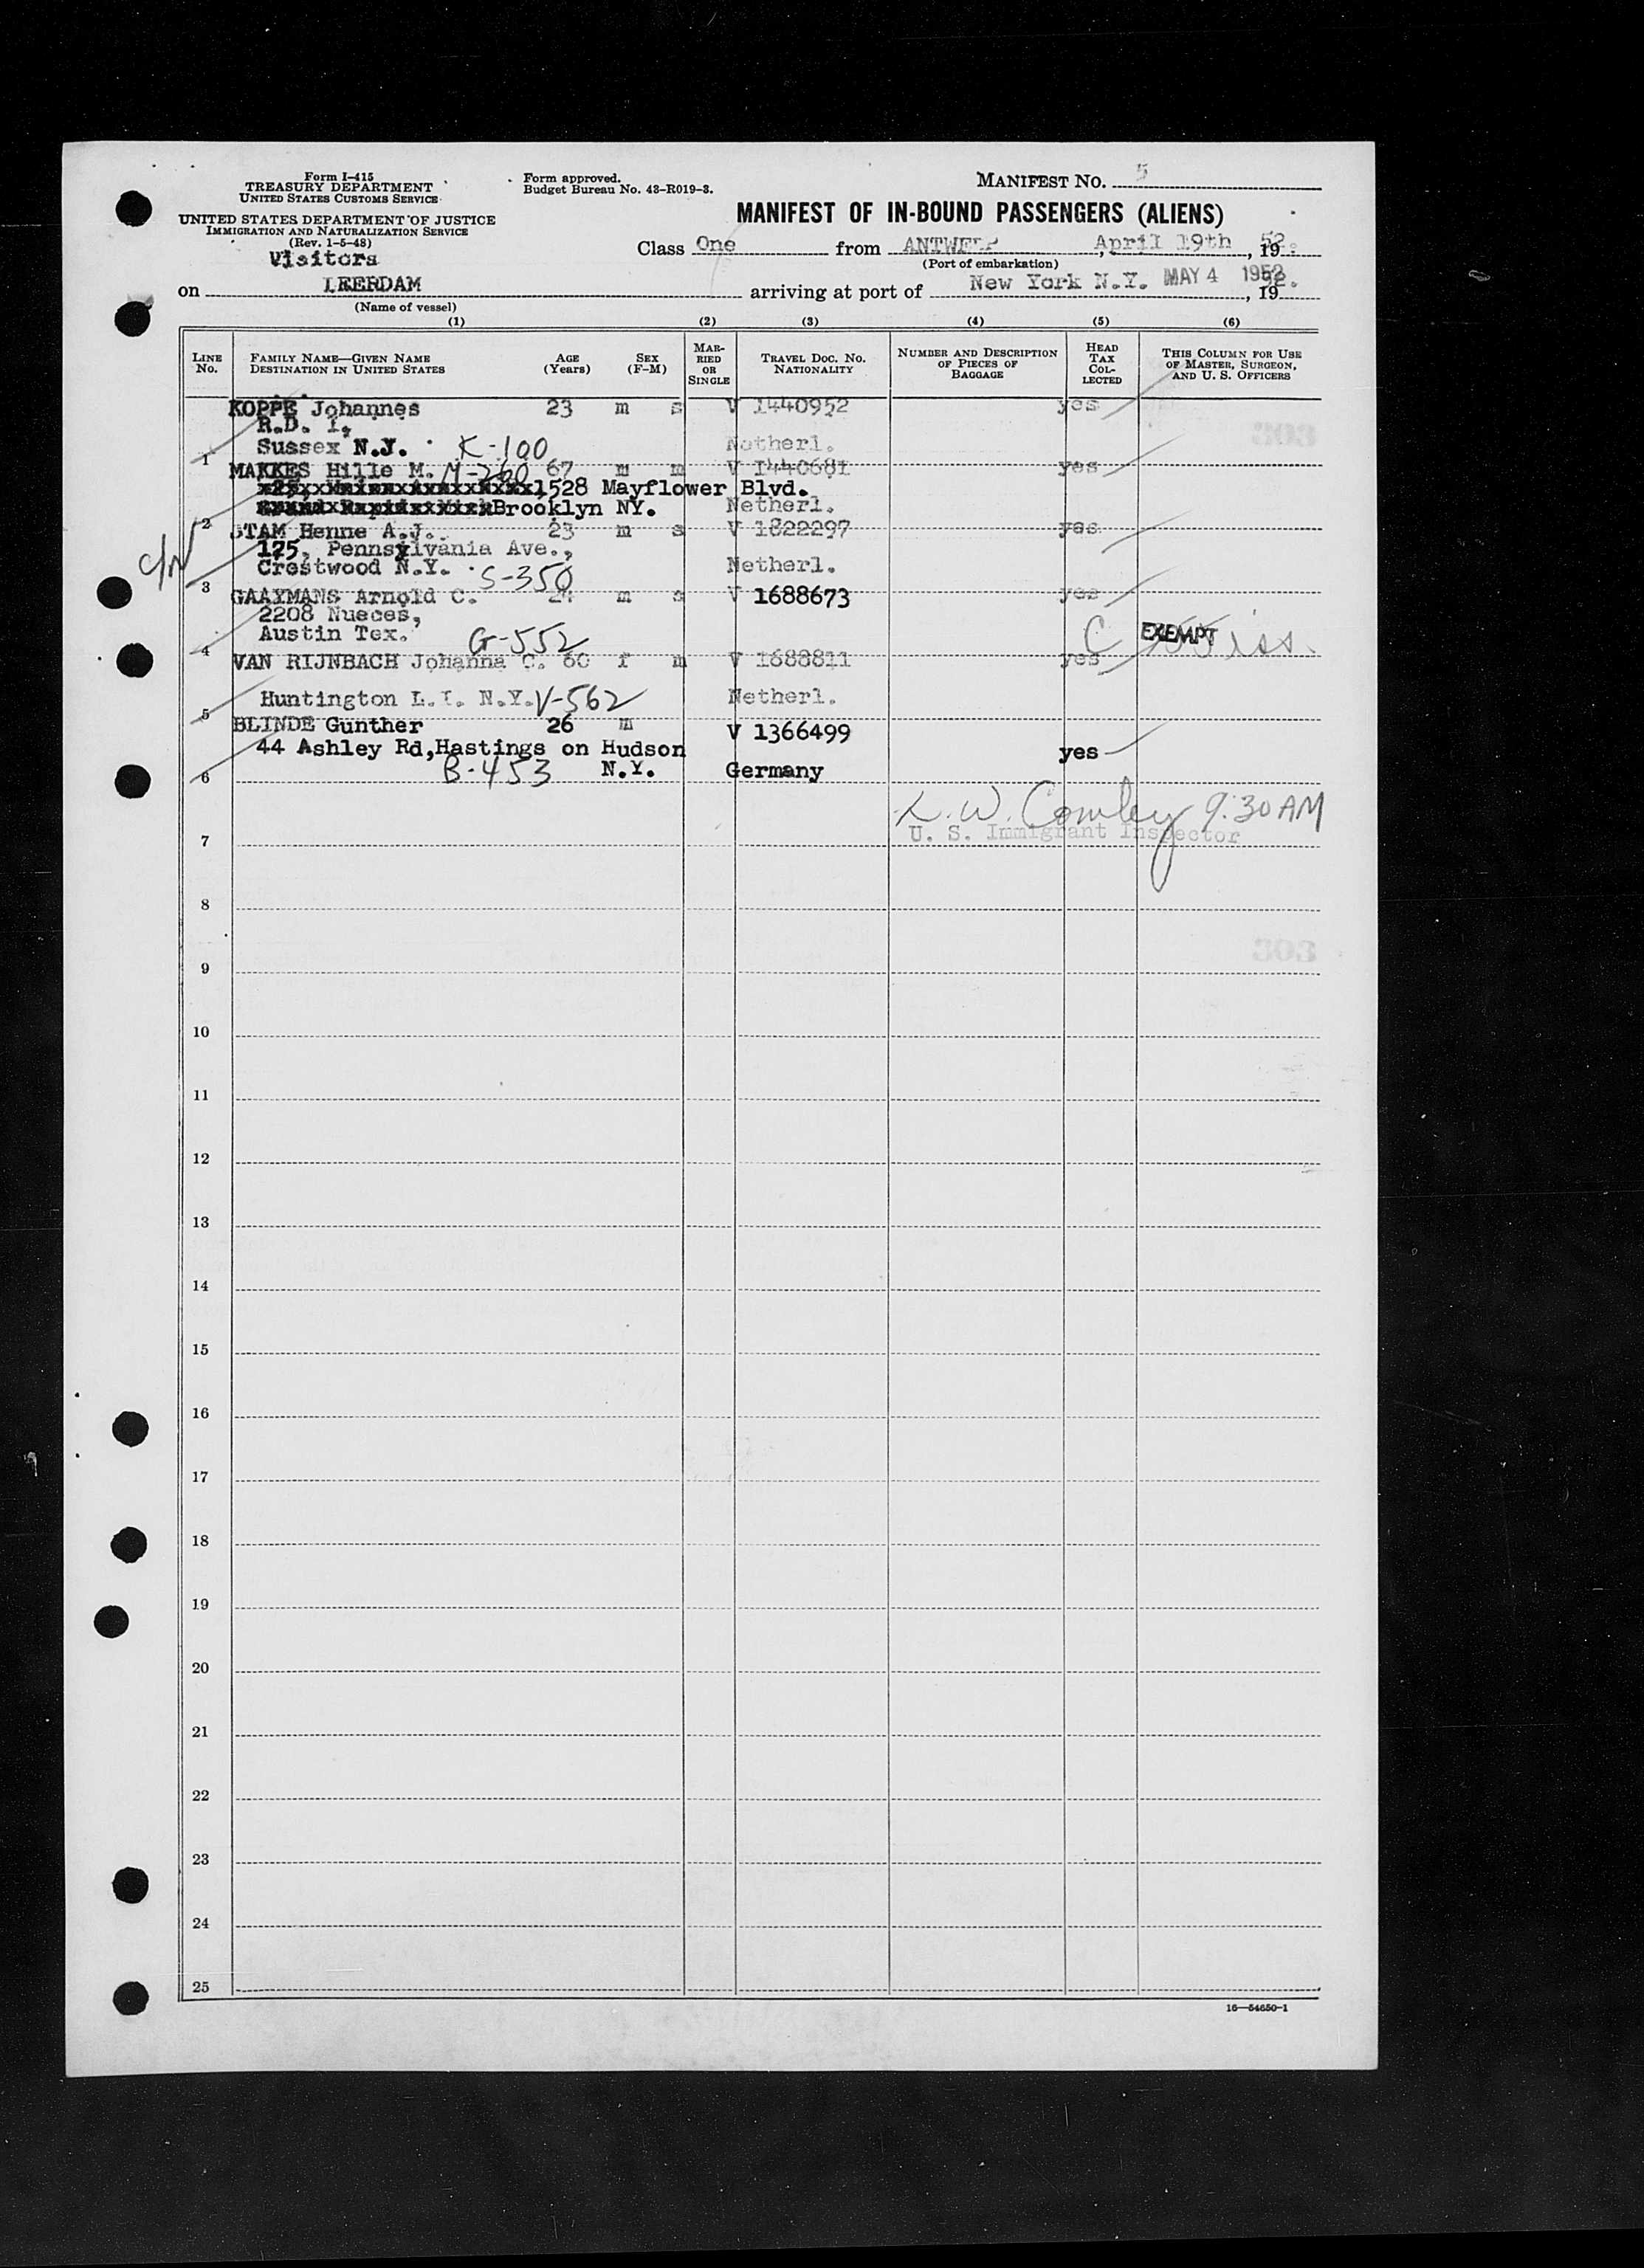 Form I-415
TREASURY DEPARTMENT
UNITED STATES CUSTOMS SERVICE
UNITED STATES DEPARTMENT OF JUSTICE
IMMIGRATION AND NATURALIZATION SERVICE
(Rev. 1-5-48)
Visitors
Form approved.
Budget Bureau No. 43-R019-3.
MANIFEST NO. 5
MANIFEST OF IN-BOUND PASSENGERS (ALIENS)
Class One from ANTWERP, April 19th, 1952.
(Port of embarkation)
on LEERDAM arriving at port of New York N.Y. MAY 4 1952, 19
(Name of vessel)
(1) (2) (3) (4) (5) (6)
LINE No. FAMILY NAME—GIVEN NAME DESTINATION IN UNITED STATES AGE (Years) SEX (F-M) MARRIED OR SINGLE TRAVEL DOC. NO. NATIONALITY NUMBER AND DESCRIPTION OF PIECES OF BAGGAGE HEAD TAX COLLECTED THIS COLUMN FOR USE OF MASTER, SURGEON, AND U. S. OFFICERS
KOPPE Johannes 23 m s V 1440952 yes
R.D. 1,
1 Sussex N.J. K-100 Netherl.
MAKKES Hille M. M-260 67 m m V 1440681 yes
1528 Mayflower Blvd.
2 Brooklyn NY. Netherl.
STAM Henne A.J. 23 m s V 1822297 yes
175, Pennsylvania Ave.,
3 Crestwood N.Y. S-350 Netherl.
GAAYMANS Arnold C. m s V 1688673 yes
2208 Nueces,
4 Austin Tex. G-552 C EXEMPT
VAN RIJNBACH Johanna C. 60 f m V 1688811 yes
5 Huntington L.I. N.Y. V-562 Netherl.
BLINDE Gunther 26 m V 1366499
44 Ashley Rd, Hastings on Hudson yes
6 B-453 N.Y. Germany
L. W. Cowley 9:30 AM
7 U. S. Immigrant Inspector
8
9
10
11
12
13
14
15
16
17
18
19
20
21
22
23
24
25
16—54650-1